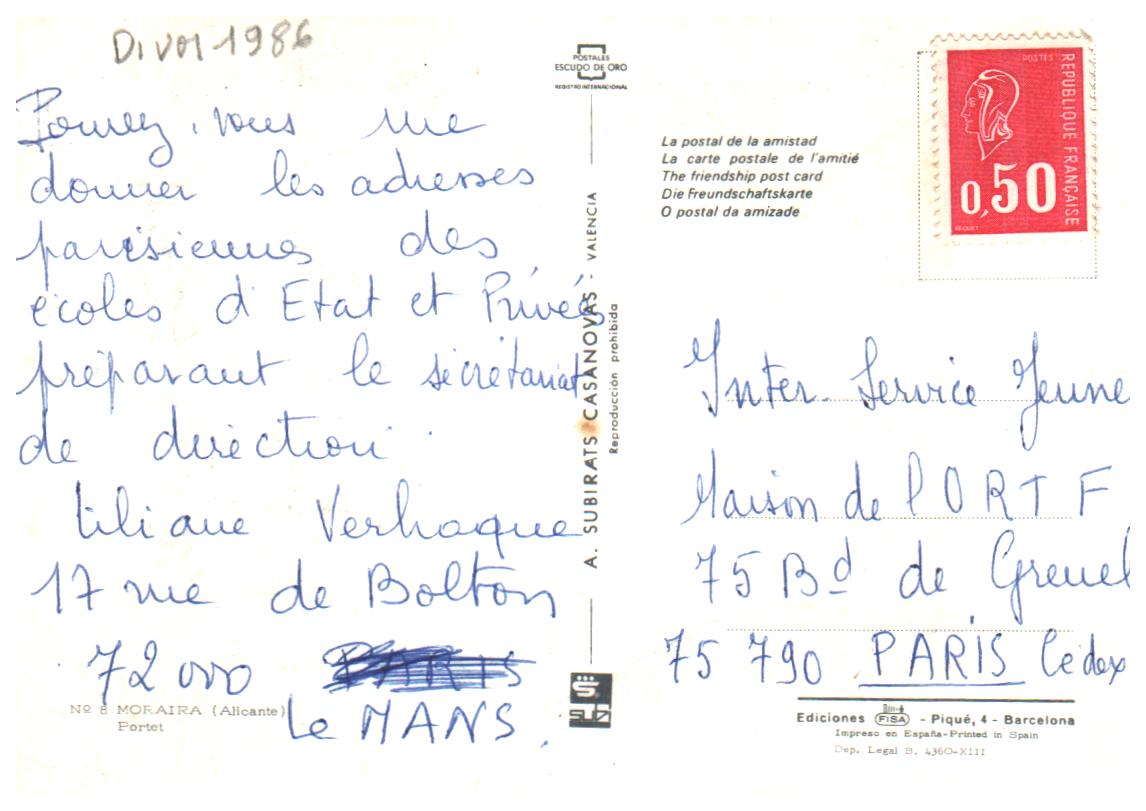 Divol 1986
Pouvez-vous me
donner les adresses
parisiennes des
écoles d'Etat et Privées
préparant le sécrétariat
de direction.
Liliane Verhaque
17 rue de Bolton
72000 PARIS
Le MANS.
Nº 8 MORAIRA (Alicante)
Portet
POSTALES
ESCUDO DE ORO
REGISTRO INTERNACIONAL
A. SUBIRATS CASANOVAS - VALENCIA
Reproducción prohibida
La postal de la amistad
La carte postale de l'amitié
The friendship post card
Die Freundschaftskarte
O postal da amizade
POSTES
REPUBLIQUE FRANÇAISE
0,50
BEQUET
Inter-Service Jeune
Maison de l'ORTF
75 Bd de Grenel
75 790 PARIS Cédex
Ediciones FISA - Piqué, 4 - Barcelona
Impreso en España-Printed in Spain
Dep. Legal B. 4360-XIII